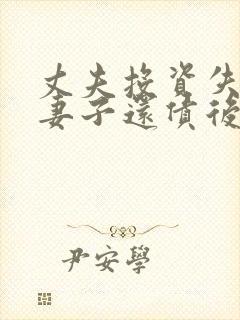 丈夫投資失
妻子還債後
尹安學